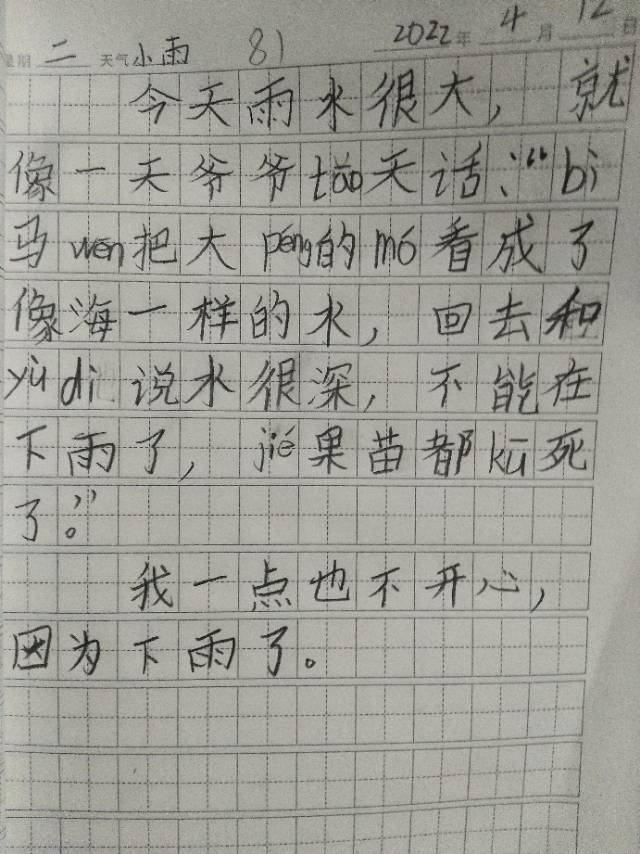 星期二 天气小雨 81 2022年4月12日
今天雨水很大，就
像一天爷爷tǎo天话：“bì
马wēn把大péng的mó看成了
像海一样的水，回去和
yù dì说水很深，不能在
下雨了，jié果苗都kū死
了。”
我一点也不开心，
因为下雨了。